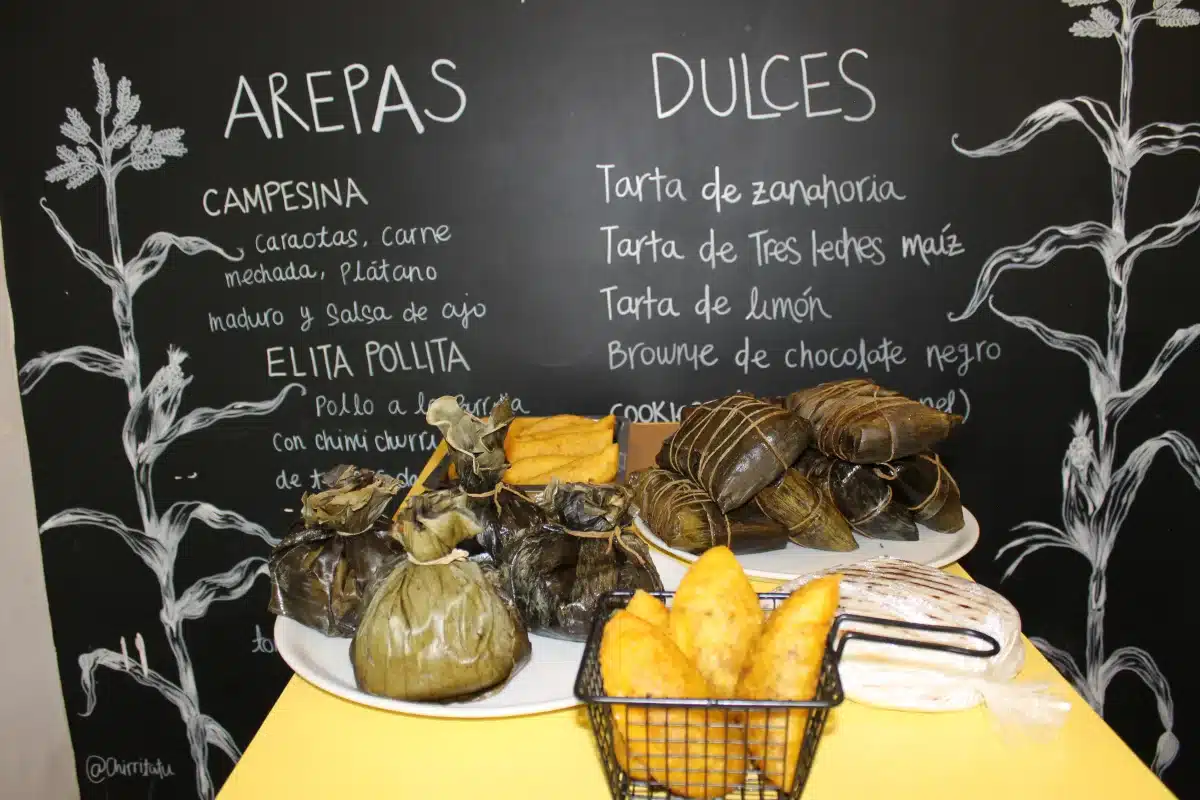 AREPAS
CAMPESINA
caraotas, carne
mechada, Plátano
maduro y salsa de ajo
ELITA POLLITA
Pollo a la
con chimichurri
de
DULCES
Tarta de zanahoria
Tarta de Tres leches maíz
Tarta de limón
Brownye de chocolate negro
@Chirritatu